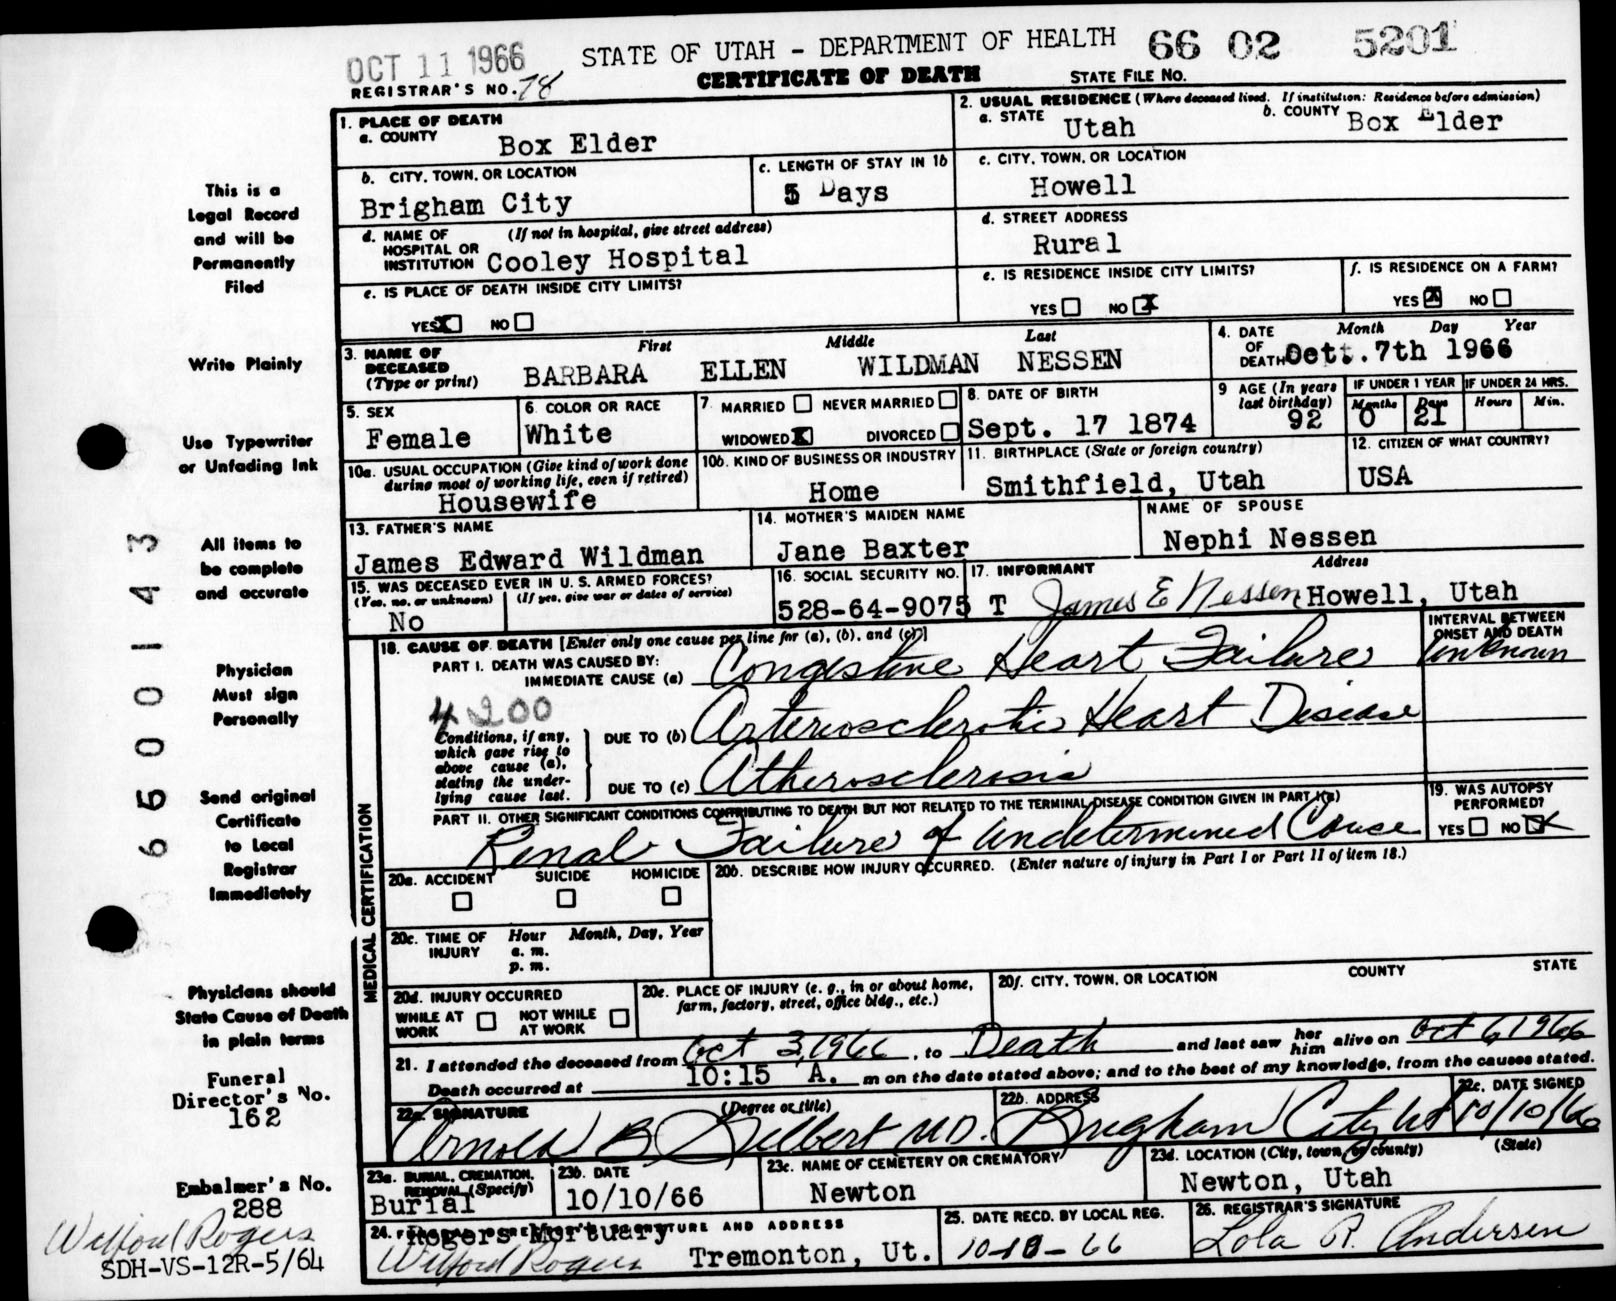 OCT 11 1966
STATE OF UTAH - DEPARTMENT OF HEALTH 66 02 5201
CERTIFICATE OF DEATH STATE FILE NO.
REGISTRAR'S NO. 78
1. PLACE OF DEATH
a. COUNTY Box Elder
2. USUAL RESIDENCE (Where deceased lived. If institution: Residence before admission)
a. STATE Utah b. COUNTY Box Elder
b. CITY, TOWN, OR LOCATION Brigham City
c. LENGTH OF STAY IN 1b 5 Days
c. CITY, TOWN, OR LOCATION
Howell
d. NAME OF HOSPITAL OR INSTITUTION (If not in hospital, give street address)
Cooley Hospital
d. STREET ADDRESS
Rural
e. IS PLACE OF DEATH INSIDE CITY LIMITS?
YES X NO
e. IS RESIDENCE INSIDE CITY LIMITS?
YES NO X
f. IS RESIDENCE ON A FARM?
YES X NO
3. NAME OF DECEASED (Type or print)
First Middle Last
BARBARA ELLEN WILDMAN NESSEN
4. DATE OF DEATH Month Day Year
Oct. 7th 1966
5. SEX
Female
6. COLOR OR RACE
White
7. MARRIED NEVER MARRIED
WIDOWED X DIVORCED
8. DATE OF BIRTH
Sept. 17 1874
9 AGE (In years last birthday)
92
IF UNDER 1 YEAR IF UNDER 24 HRS.
Months Days Hours Min.
0 21
10a. USUAL OCCUPATION (Give kind of work done during most of working life, even if retired)
Housewife
10b. KIND OF BUSINESS OR INDUSTRY
Home
11. BIRTHPLACE (State or foreign country)
Smithfield, Utah
12. CITIZEN OF WHAT COUNTRY?
USA
13. FATHER'S NAME
James Edward Wildman
14. MOTHER'S MAIDEN NAME
Jane Baxter
NAME OF SPOUSE
Nephi Nessen
15. WAS DECEASED EVER IN U.S. ARMED FORCES?
(Yes, no, or unknown) (If yes, give war or dates of service)
No
16. SOCIAL SECURITY NO.
528-64-9075 T
17. INFORMANT Address
James E Nessen Howell, Utah
18. CAUSE OF DEATH [Enter only one cause per line for (a), (b), and (c)]
INTERVAL BETWEEN ONSET AND DEATH
PART I. DEATH WAS CAUSED BY:
IMMEDIATE CAUSE (a) Congestive Heart Failure Unknown
4200
Conditions, if any, which gave rise to above cause (a), stating the underlying cause last.
DUE TO (b) Arteriosclerotic Heart Disease
DUE TO (c) Atherosclerosis
PART II. OTHER SIGNIFICANT CONDITIONS CONTRIBUTING TO DEATH BUT NOT RELATED TO THE TERMINAL DISEASE CONDITION GIVEN IN PART I(a)
Renal Failure of Undetermined Cause
19. WAS AUTOPSY PERFORMED?
YES NO X
MEDICAL CERTIFICATION
20a. ACCIDENT SUICIDE HOMICIDE
20b. DESCRIBE HOW INJURY OCCURRED. (Enter nature of injury in Part I or Part II of item 18.)
20c. TIME OF INJURY Hour Month, Day, Year
a. m.
p. m.
20d. INJURY OCCURRED
WHILE AT WORK NOT WHILE AT WORK
20e. PLACE OF INJURY (e. g., in or about home, farm, factory, street, office bldg., etc.)
20f. CITY, TOWN, OR LOCATION COUNTY STATE
21. I attended the deceased from Oct 3, 1966, to Death and last saw her him alive on Oct 6, 1966
Death occurred at 10:15 A. m on the date stated above; and to the best of my knowledge, from the causes stated.
22a. SIGNATURE (Degree or title)
Arnold B Gilbert M.D.
22b. ADDRESS
Brigham City Ut
22c. DATE SIGNED
10/10/66
23a. BURIAL, CREMATION, REMOVAL (Specify)
Burial
23b. DATE
10/10/66
23c. NAME OF CEMETERY OR CREMATORY
Newton
23d. LOCATION (City, town, or county) (State)
Newton, Utah
24. SIGNATURE AND ADDRESS
Rogers Mortuary
Wilford Rogers Tremonton, Ut.
25. DATE RECD. BY LOCAL REG.
10-10-66
26. REGISTRAR'S SIGNATURE
Lola R. Andersen
This is a
Legal Record
and will be
Permanently
Filed
Write Plainly
Use Typewriter
or Unfading Ink
All items to
be complete
and accurate
Physician
Must sign
Personally
Send original
Certificate
to Local
Registrar
Immediately
Physicians should
State Cause of Death
in plain terms
Funeral
Director's No.
162
Embalmer's No.
288
Wilford Rogers
SDH-VS-12R-5/64
66 00 1 43